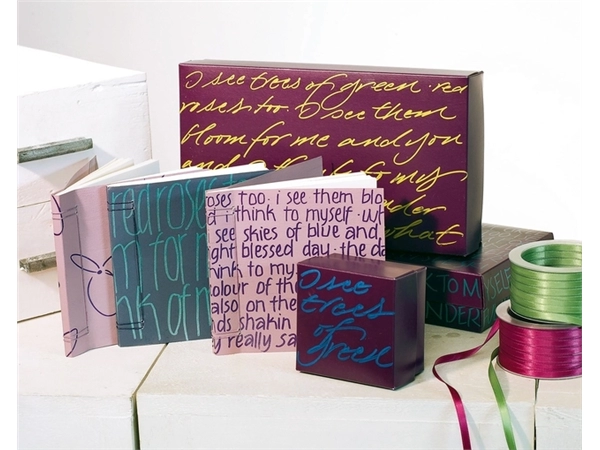 I see trees of green. red
roses. too. I see them
bloom for me and you
and to my
what
red ros
m for m
nk of m
oses too. i see them blo
d i think to myself. w
see skies of blue and
ght blessed day. the da
hink to my
colour of the
also on the
nds shakin
y really sa
I see
trees
of
green
K TO MYSELF
NDER